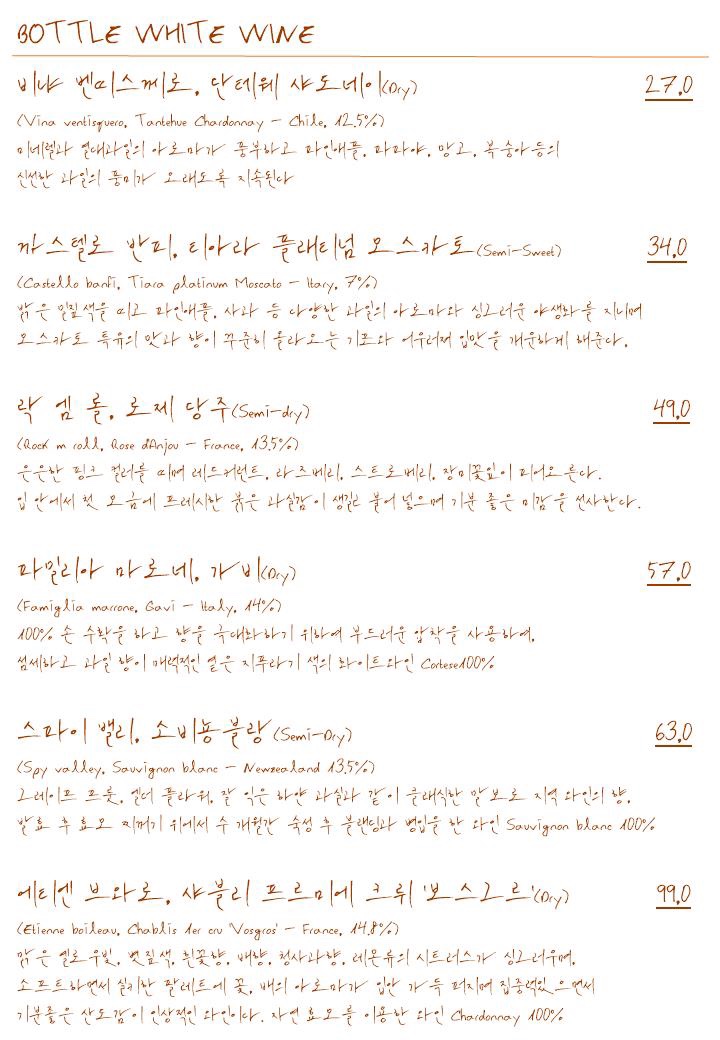 BOTTLE WHITE WINE
비냐 벤띠스께로, 탄테웨 샤도네이(Dry) 27.0
(Vina ventisquero, Tantehue Chardonnay – Chile, 12.5%)
미네랄과 열대과일의 아로마가 풍부하고 파인애플, 파파야, 망고, 복숭아등의
신선한 과일의 풍미가 오래도록 지속된다
까스텔로 반피, 티아라 플래티넘 모스카토(Semi-Sweet) 34.0
(Castello banfi, Tiara platinum Moscato – Itary, 7%)
밝은 밀짚색을 띠고 파인애플, 사과 등 다양한 과일의 아로마와 싱그러운 야생화를 지니며
모스카토 특유의 맛과 향이 꾸준히 올라오는 기포와 어우러져 입맛을 개운하게 해준다.
락 엠 롤, 로제 당주(Semi-dry) 49.0
(Rock m roll, Rose dAnjou – France, 13.5%)
은은한 핑크 컬러를 띠며 레드커런트, 라즈베리, 스트로베리, 장미꽃잎이 피어오른다.
입 안에서 첫 모금에 프레시한 붉은 과실감이 생기를 불어 넣으며 기분 좋은 미감을 선사한다.
파밀리아 마로네, 가비(Dry) 57.0
(Famiglia marrone, Gavi – Italy, 14%)
100% 손 수확을 하고 향을 극대화하기 위하여 부드러운 압착을 사용하여,
섬세하고 과일 향이 매력적인 옅은 지푸라기 색의 화이트와인 Cortese100%
스파이 밸리, 소비뇽블랑(Semi-Dry) 63.0
(Spy valley, Sauvignon blanc – Newzealand 13.5%)
그레이프 프룻, 엘더 플라워, 잘 익은 하얀 과실과 같이 클래식한 말보로 지역 와인의 향,
발효 후 효모 찌꺼기 위에서 수 개월간 숙성 후 블랜딩과 병입을 한 와인 Sauvignon blanc 100%
에티엔 브와로, 샤블리 프르미에 크뤼 '보스그르'(Dry) 99.0
(Etienne boileau, Chablis 1er cru 'Vosgros' – France, 14.8%)
맑은 옐로우빛, 볏짚색, 흰꽃향, 배향, 청사과향, 레몬유의 시트러스가 싱그러우며,
소프트하면서 실키한 팔레트에 꽃, 배의 아로마가 입안 가득 퍼지며 집중력있으면서
기분좋은 산도감이 인상적인 와인이다. 자연 효모를 이용한 와인 Chardonnay 100%